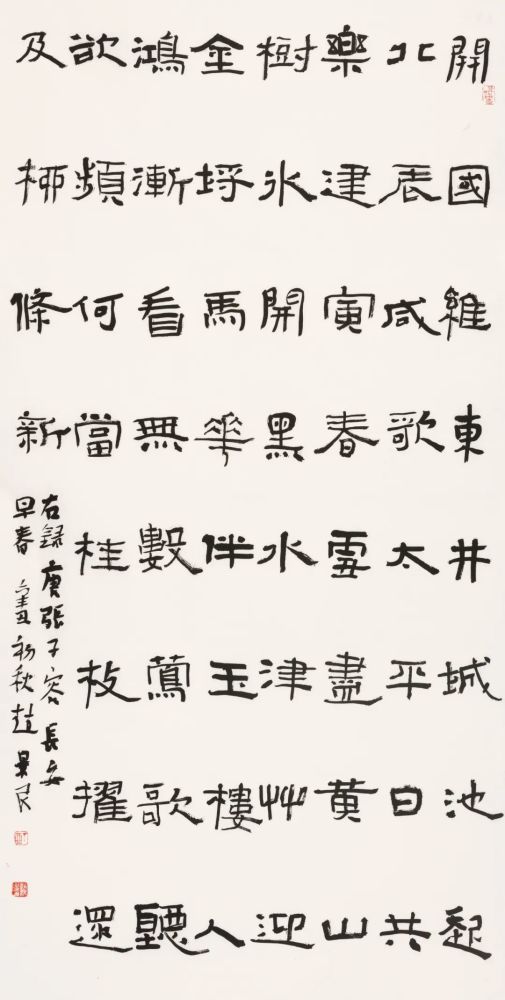 開國維東井城池起
北辰咸歌太平日共
樂建寅春雪盡黃山
樹氷開黑水津艸迎
金埒馬華伴玉樓人
鴻漸看無數鶯歌聽
欲頻何當桂枝擢還
及柳條新
右錄唐張子容長安
早春 辛丑初秋趙